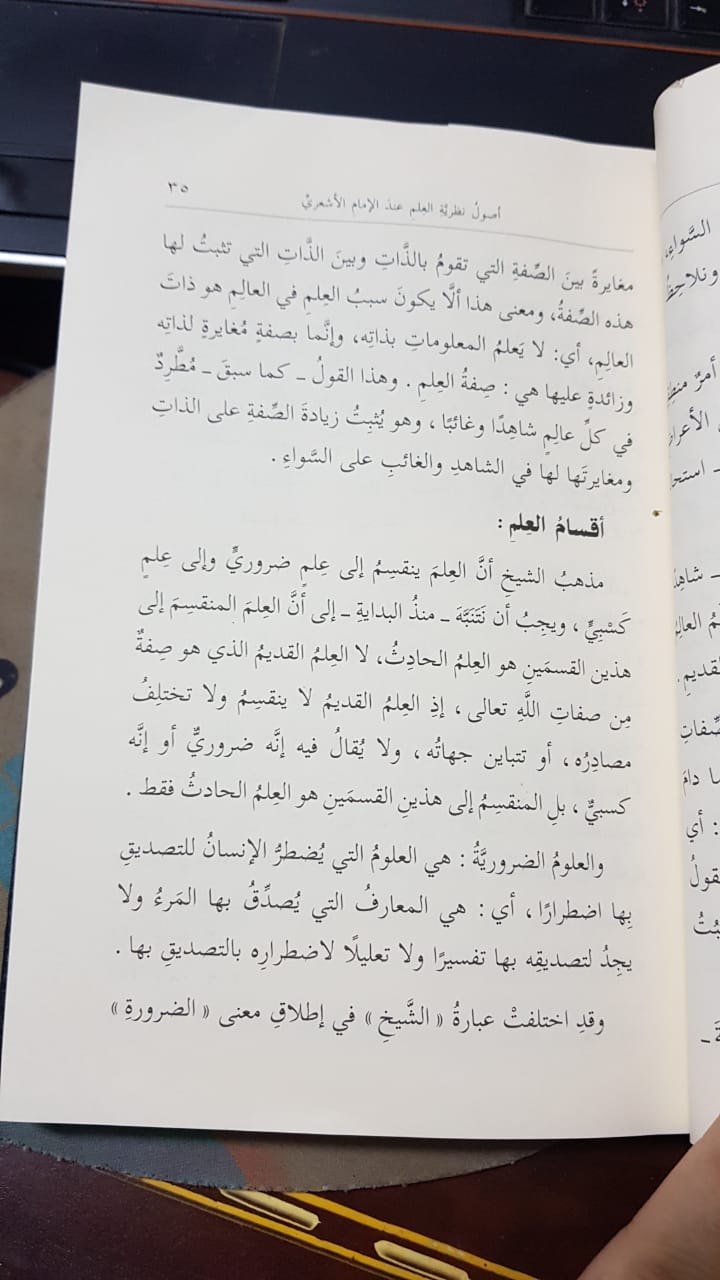 أصولُ نظريَّةِ العِلمِ عندَ الإمامِ الأشعريِّ ٣٥
مغايرةً بينَ الصِّفةِ التي تقومُ بالذَّاتِ وبينَ الذَّاتِ التي تثبتُ لها
هذه الصِّفةُ، ومعنى هذا ألَّا يكونَ سببُ العِلمِ في العالِمِ هو ذاتَ
العالِمِ، أي: لا يَعلمُ المعلوماتِ بذاتِه، وإنَّما بصفةٍ مُغايرةٍ لذاتِه
وزائدةٍ عليها هي: صِفةُ العِلمِ. وهذا القولُ ــ كما سبقَ ــ مُطَّرِدٌ
في كلِّ عالِمٍ شاهِدًا وغائبًا، وهو يُثبِتُ زيادةَ الصِّفةِ على الذاتِ
ومغايرتَها لها في الشاهدِ والغائبِ على السَّواءِ.
أقسامُ العِلمِ:
مذهبُ الشيخِ أنَّ العِلمَ ينقسِمُ إلى عِلمٍ ضروريٍّ وإلى عِلمٍ
كَسْبِيٍّ، ويجِبُ أن نَتَنَبَّهَ ــ منذُ البدايةِ ــ إلى أنَّ العِلمَ المنقسِمَ إلى
هذين القسمَينِ هو العِلمُ الحادِثُ، لا العِلمُ القديمُ الذي هو صِفةٌ
مِن صفاتِ اللَّهِ تعالى، إذِ العِلمُ القديمُ لا ينقسِمُ ولا تختلِفُ
مصادِرُه، أو تتباين جهاتُه، ولا يُقالُ فيه إنَّه ضروريٌّ أو إنَّه
كسبيٌّ، بلِ المنقسِمُ إلى هذينِ القسمَينِ هو العِلمُ الحادثُ فقط.
والعلومُ الضروريَّةُ: هي العلومُ التي يُضطرُّ الإنسانُ للتصديقِ
بِها اضطرارًا، أي: هي المعارفُ التي يُصدِّقُ بها المَرءُ ولا
يجِدُ لتصديقِه بها تفسيرًا ولا تعليلًا لاضطرارِه بالتصديقِ بها.
وقدِ اختلفتْ عبارةُ «الشَّيخِ» في إطلاقِ معنى «الضرورةِ»
السَّواءِ،
ونلاحِظُ
أمرٌ
ــ
العالِمُ
القديمِ.
دامَ
: أي